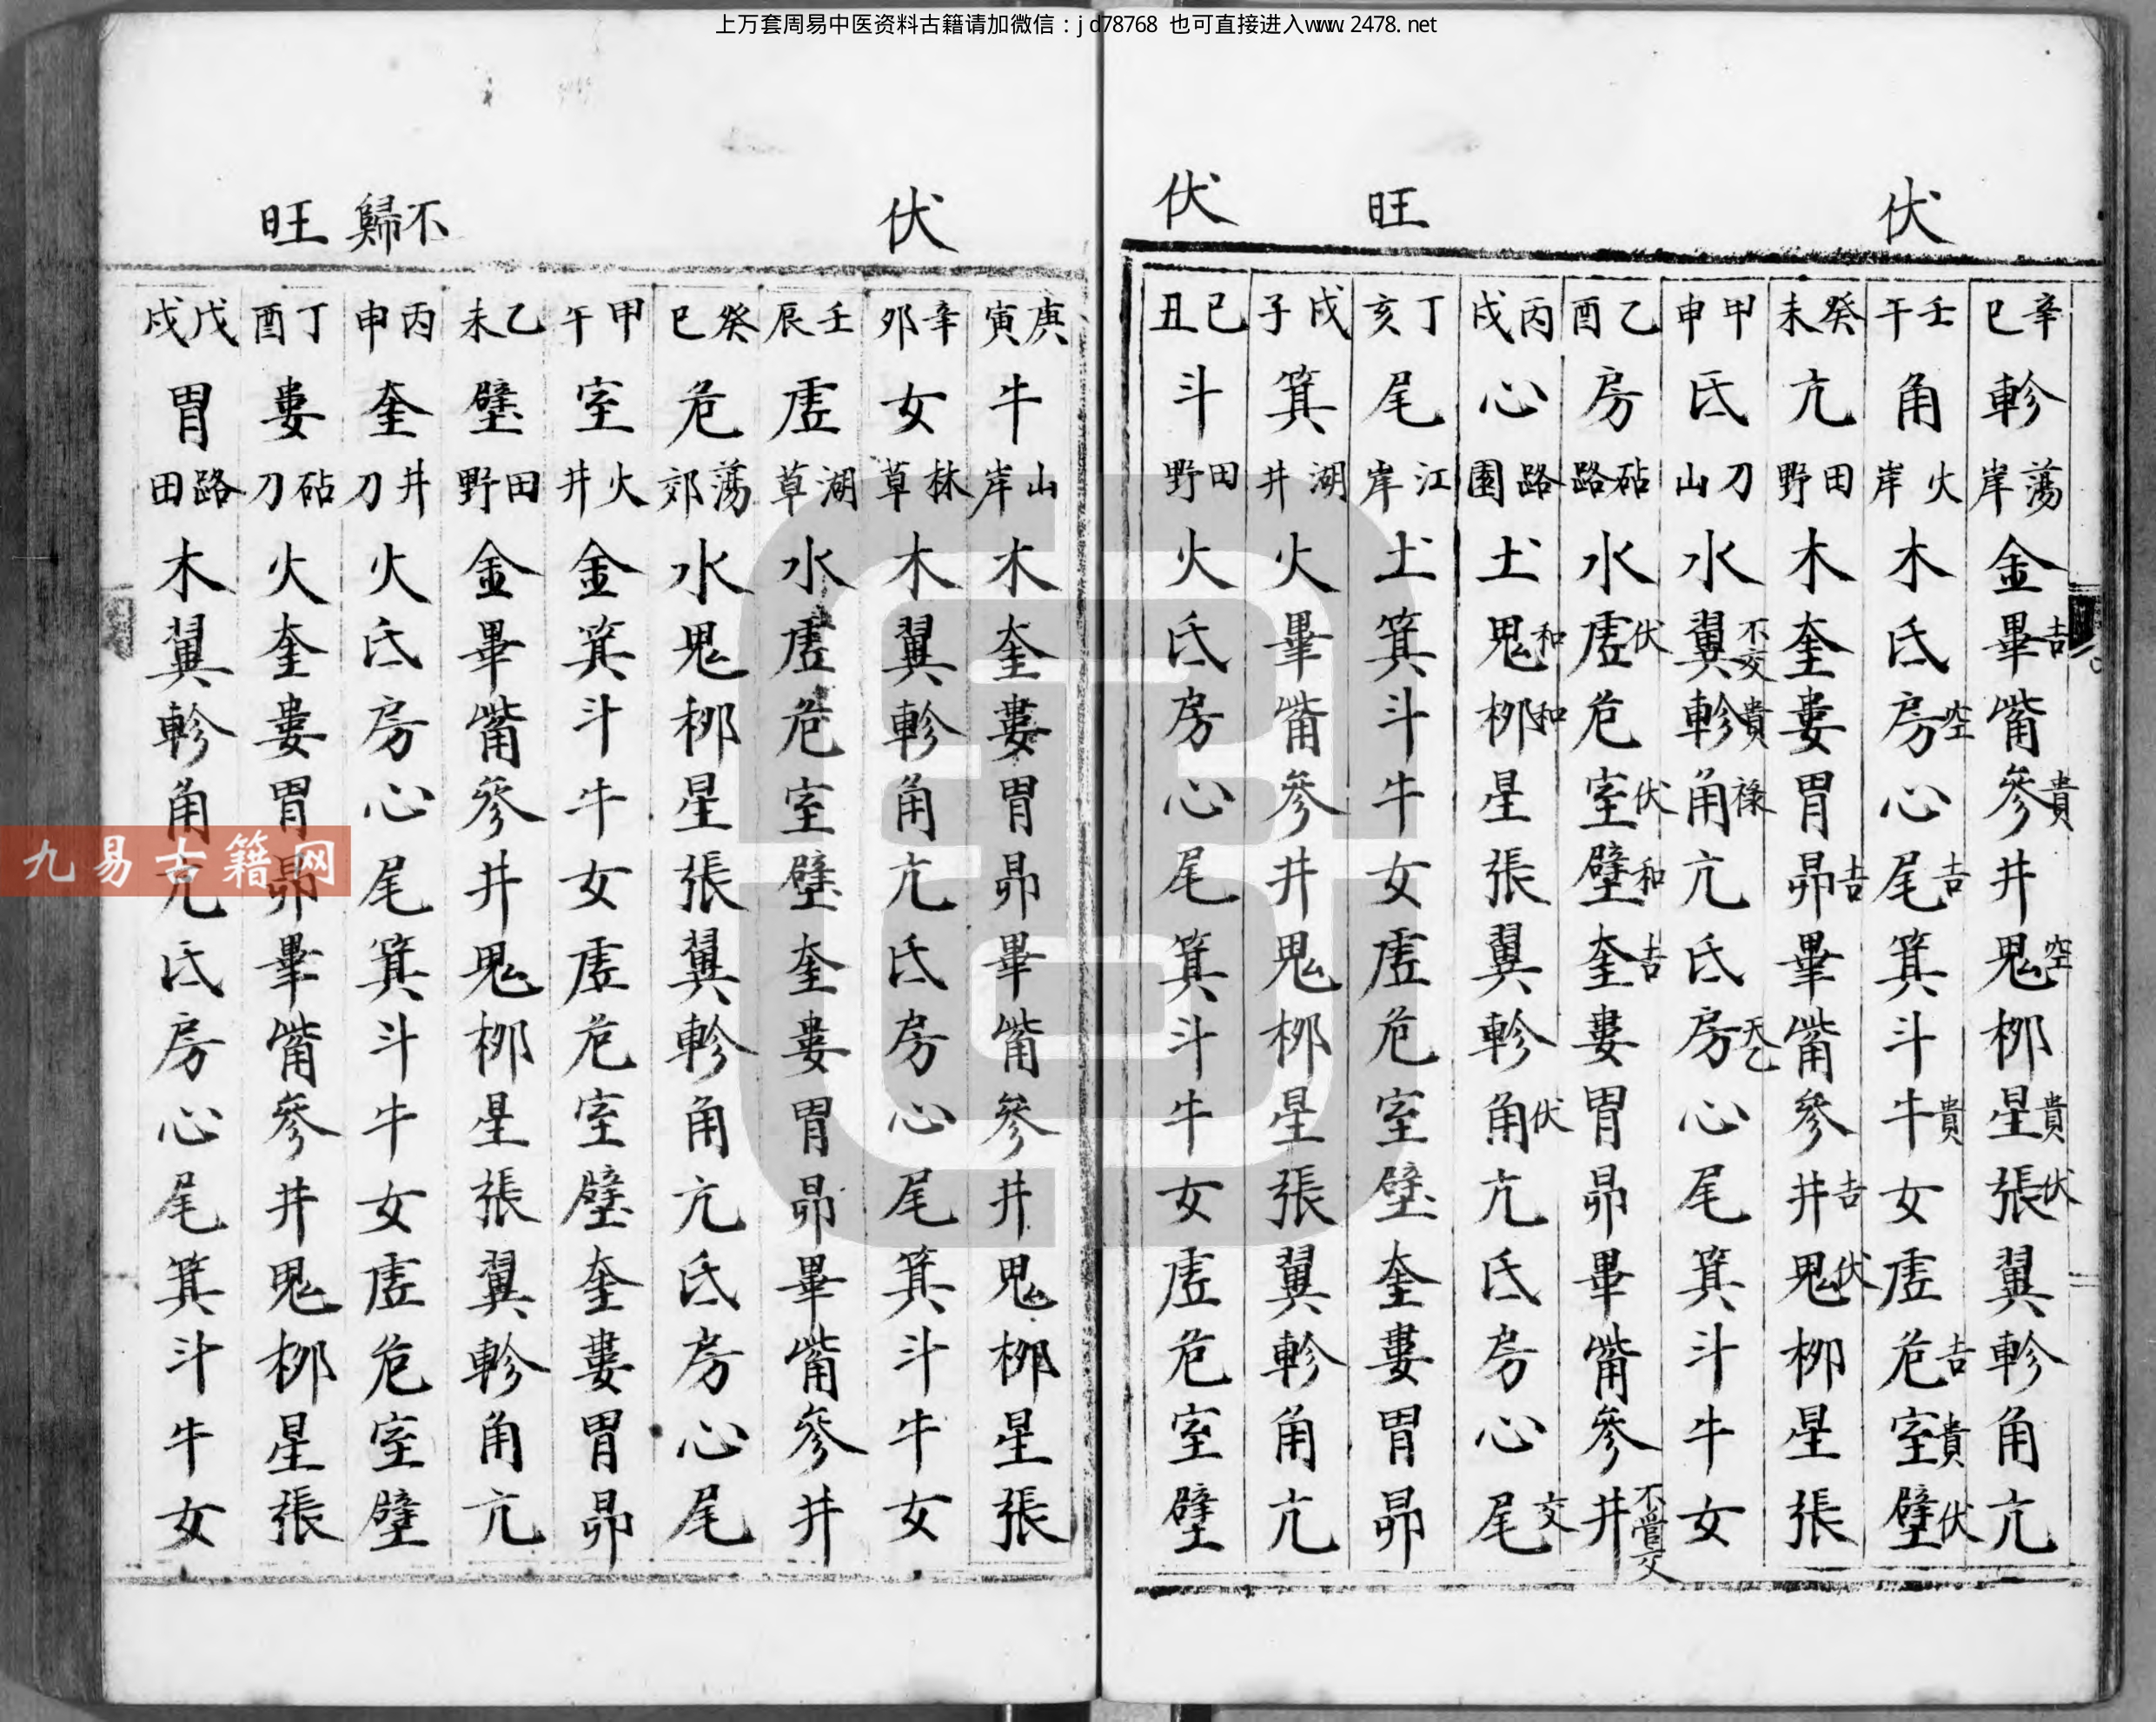 上万套周易中医资料古籍请加微信：jd78768 也可直接进入www.2478.net
伏
旺
伏
辛巳 軫 蕩岸 金 畢吉 觜 參貴 井 鬼空 柳 星貴 張伏 翼 軫 角 亢
壬午 角 火岸 木 氐 房空 心 尾吉 箕 斗 牛貴 女 虛 危吉 室貴 壁伏
癸未 亢 田野 木 奎 婁 胃 昴吉 畢 觜 參 井吉 鬼伏 柳 星 張
甲申 氐 刀山 水 翼不交 軫貴 角祿 亢 氐 房天乙 心 尾 箕 斗 牛 女
乙酉 房 砧路 水 虛伏 危 室伏 壁和 奎吉 婁 胃 昴 畢 觜 參 井不當交
丙戌 心 路園 土 鬼和 柳和 星 張 翼 軫 角伏 亢 氐 房 心 尾交
丁亥 尾 江岸 土 箕 斗 牛 女 虛 危 室 壁 奎 婁 胃 昴
戊子 箕 湖井 火 畢 觜 參 井 鬼 柳 星 張 翼 軫 角 亢
己丑 斗 田野 火 氐 房 心 尾 箕 斗 牛 女 虛 危 室 壁
伏
不歸
旺
庚寅 牛 山岸 木 奎 婁 胃 昴 畢 觜 參 井 鬼 柳 星 張
辛卯 女 林草 木 翼 軫 角 亢 氐 房 心 尾 箕 斗 牛 女
壬辰 虛 湖草 水 虛 危 室 壁 奎 婁 胃 昴 畢 觜 參 井
癸巳 危 蕩郊 水 鬼 柳 星 張 翼 軫 角 亢 氐 房 心 尾
甲午 室 火井 金 箕 斗 牛 女 虛 危 室 壁 奎 婁 胃 昴
乙未 壁 田野 金 畢 觜 參 井 鬼 柳 星 張 翼 軫 角 亢
丙申 奎 井刀 火 氐 房 心 尾 箕 斗 牛 女 虛 危 室 壁
丁酉 婁 砧刀 火 奎 婁 胃 昴 畢 觜 參 井 鬼 柳 星 張
戊戌 胃 路田 木 翼 軫 角 亢 氐 房 心 尾 箕 斗 牛 女
九易古籍网